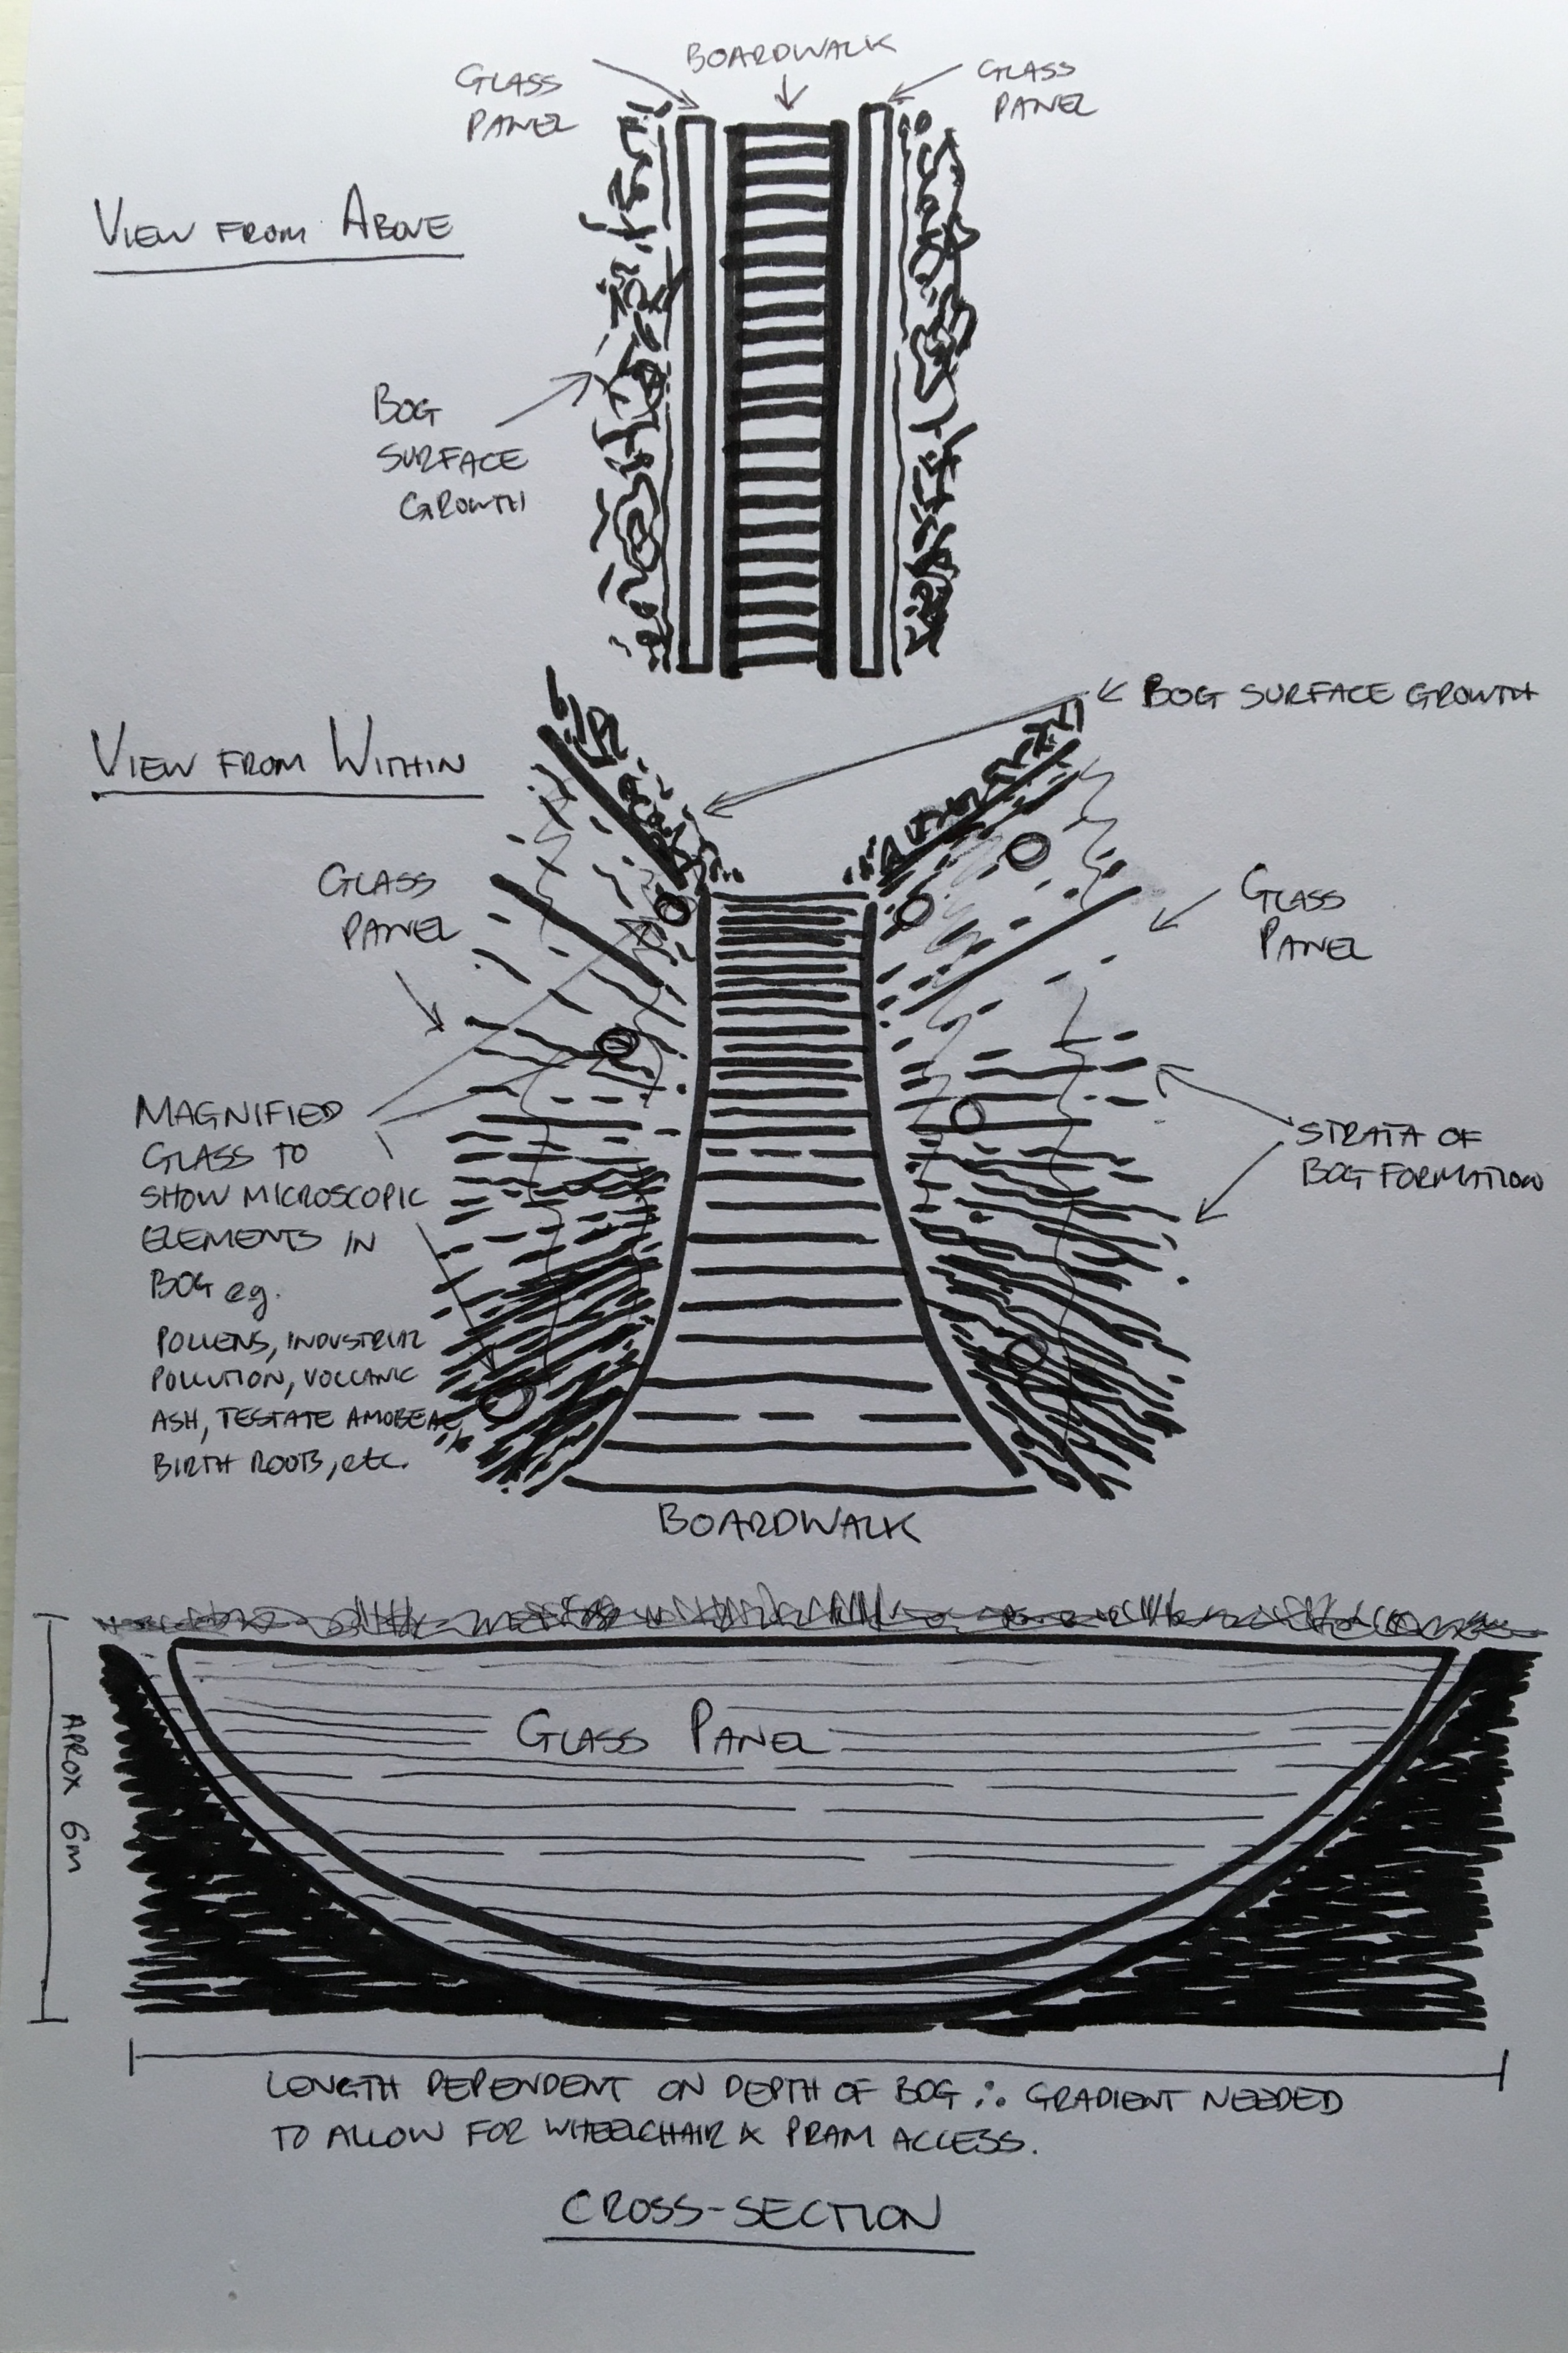 GLASS
PANEL
BOARDWALK
GLASS
PANEL
VIEW FROM ABOVE
BOG
SURFACE
GROWTH
BOG SURFACE GROWTH
VIEW FROM WITHIN
GLASS
PANEL
GLASS
PANEL
MAGNIFIED
GLASS TO
SHOW MICROSCOPIC
ELEMENTS IN
BOG eg.
POLLENS, INDUSTRIAL
POLLUTION, VOLCANIC
ASH, TESTATE AMOBEAE,
BIRTH ROOTS, etc.
STRATA OF
BOG FORMATION
BOARDWALK
GLASS PANEL
APROX 6m
LENGTH DEPENDENT ON DEPTH OF BOG ∴ GRADIENT NEEDED
TO ALLOW FOR WHEELCHAIR & PRAM ACCESS.
CROSS-SECTION